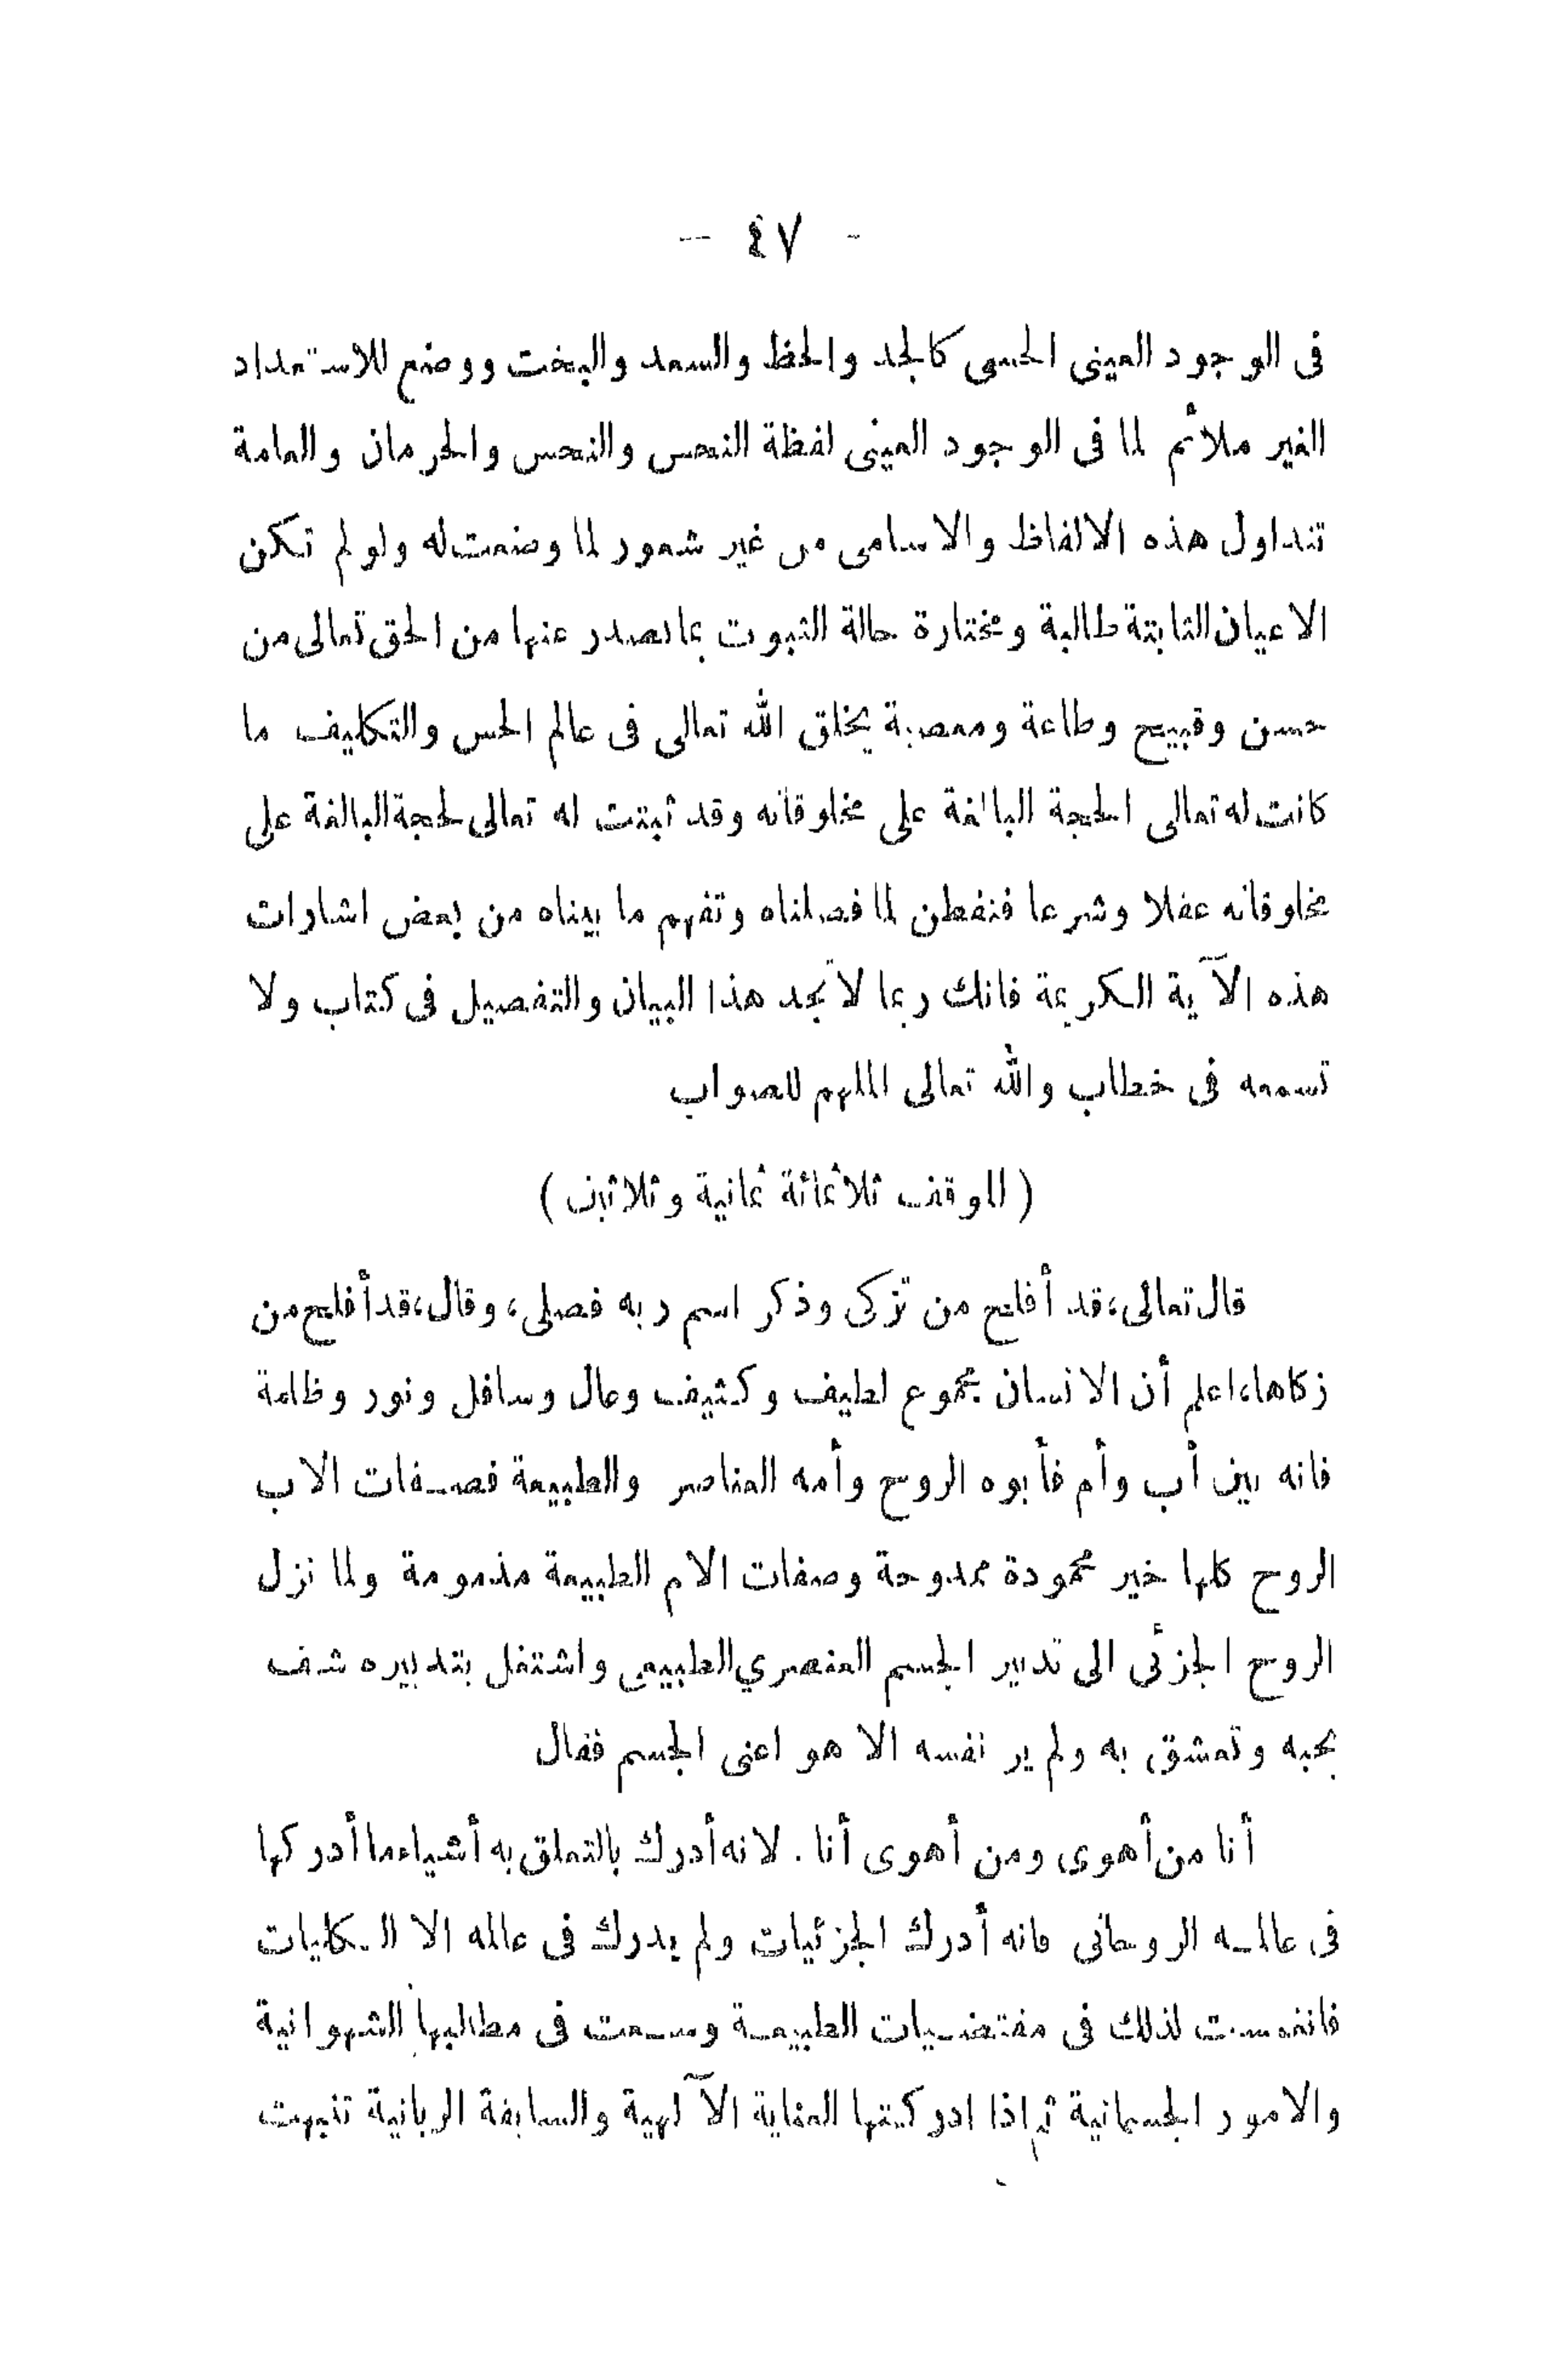 - ٤٧ -
فى الوجود العينى الحسى كالجد والحظ والسعد والبخت ووضع للاستعداد
الغير ملائم لما فى الوجود العينى لفظة النحس والنحس والحرمان والعامة
تتداول هذه الالفاظ والاسامى من غير شعور لما وضعت له ولو لم تكن
الاعيان الثابتة طالبة ومختارة حالة الثبوت بما يصدر عنها من الحق تعالى من
حسن وقبيح وطاعة ومعصية يخلق الله تعالى فى عالم الحس والتكليف ما
كانت له تعالى الحجة البالغة على مخلوقاته وقد ثبتت له تعالى لحجة البالغة على
مخلوقاته عقلا وشرعا فتفطن لما فصلناه وتفهم ما بيناه من بعض اشارات
هذه الآية الكريمة فانك ربما لا تجد هذا البيان والتفصيل فى كتاب ولا
تسمعه فى خطاب والله تعالى الملهم للصواب
( الموقف ثلاثمائة ثمانية وثلاثين )
قال تعالى، قد أفلح من تزكى وذكر اسم ربه فصلى، وقال، قد أفلح من
زكاها، اعلم أن الانسان مجموع لطيف وكثيف وعال وسافل ونور وظلمة
فانه بين أب وأم فأبوه الروح وأمه العناصر والطبيعة فصفات الاب
الروح كلها خير محمودة ممدوحة وصفات الام الطبيعة مذمومة ولما نزل
الروح الجزئى الى تدبير الجسم العنصري الطبيعى واشتغل بتدبيره شغف
بحبه وتعشق به ولم ير نفسه الا هو اعنى الجسم فقال
أنا من أهوى ومن أهوى أنا . لانه أدرك بالتعلق به أشياء ما أدركها
فى عالمه الروحانى فانه أدرك الجزئيات ولم يدرك فى عالمه الا الكليات
فانغمست لذلك فى مقتضيات الطبيعة وسعت فى مطالبها الشهوانية
والامور الجسمانية ثم اذا ادركتها العناية الآلهية والسابقة الربانية تنبهت